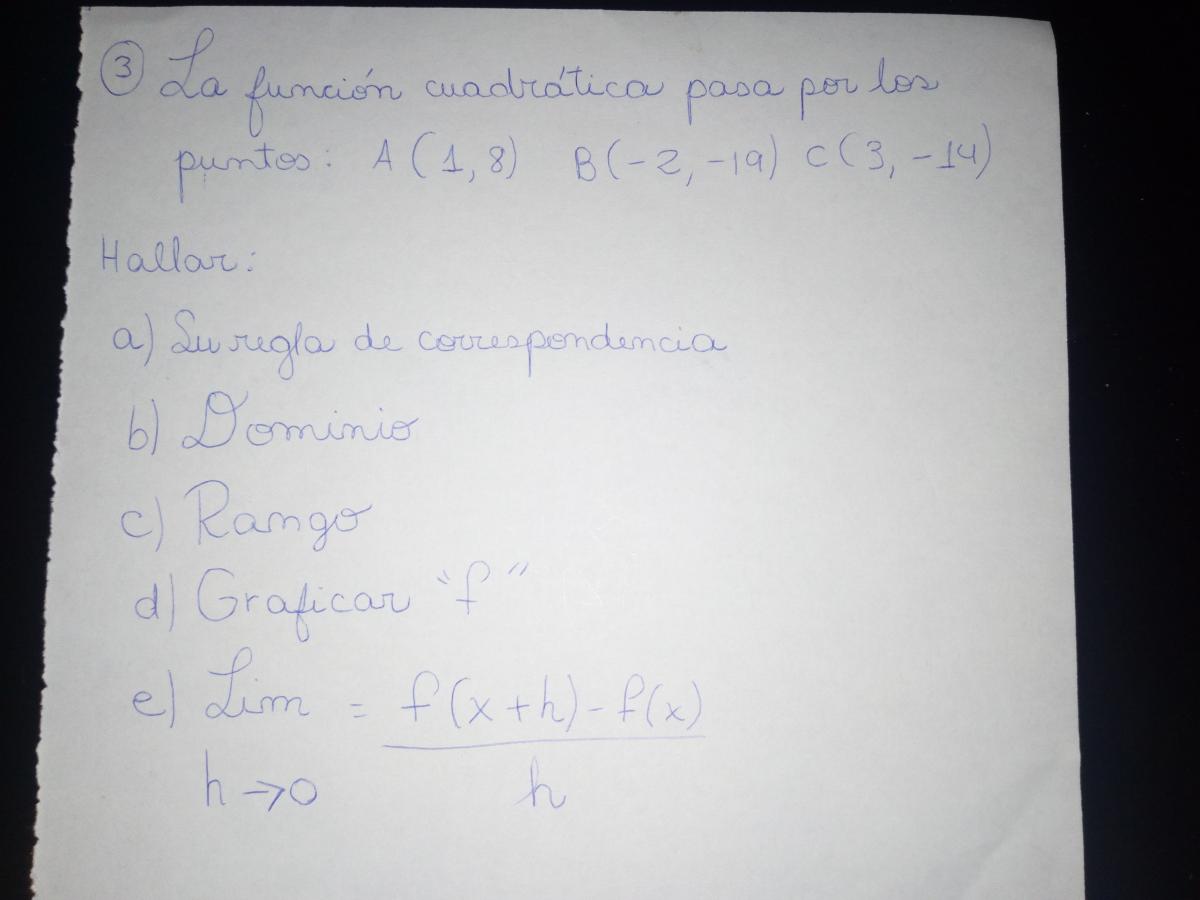 ③ La función cuadrática pasa por los
puntos: A (1, 8) B (-2, -19) C (3, -14)
Hallar:
a) Su regla de correspondencia
b) Dominio
c) Rango
d) Graficar "f"
e) Lim = f(x+h) - f(x)
h → 0 h